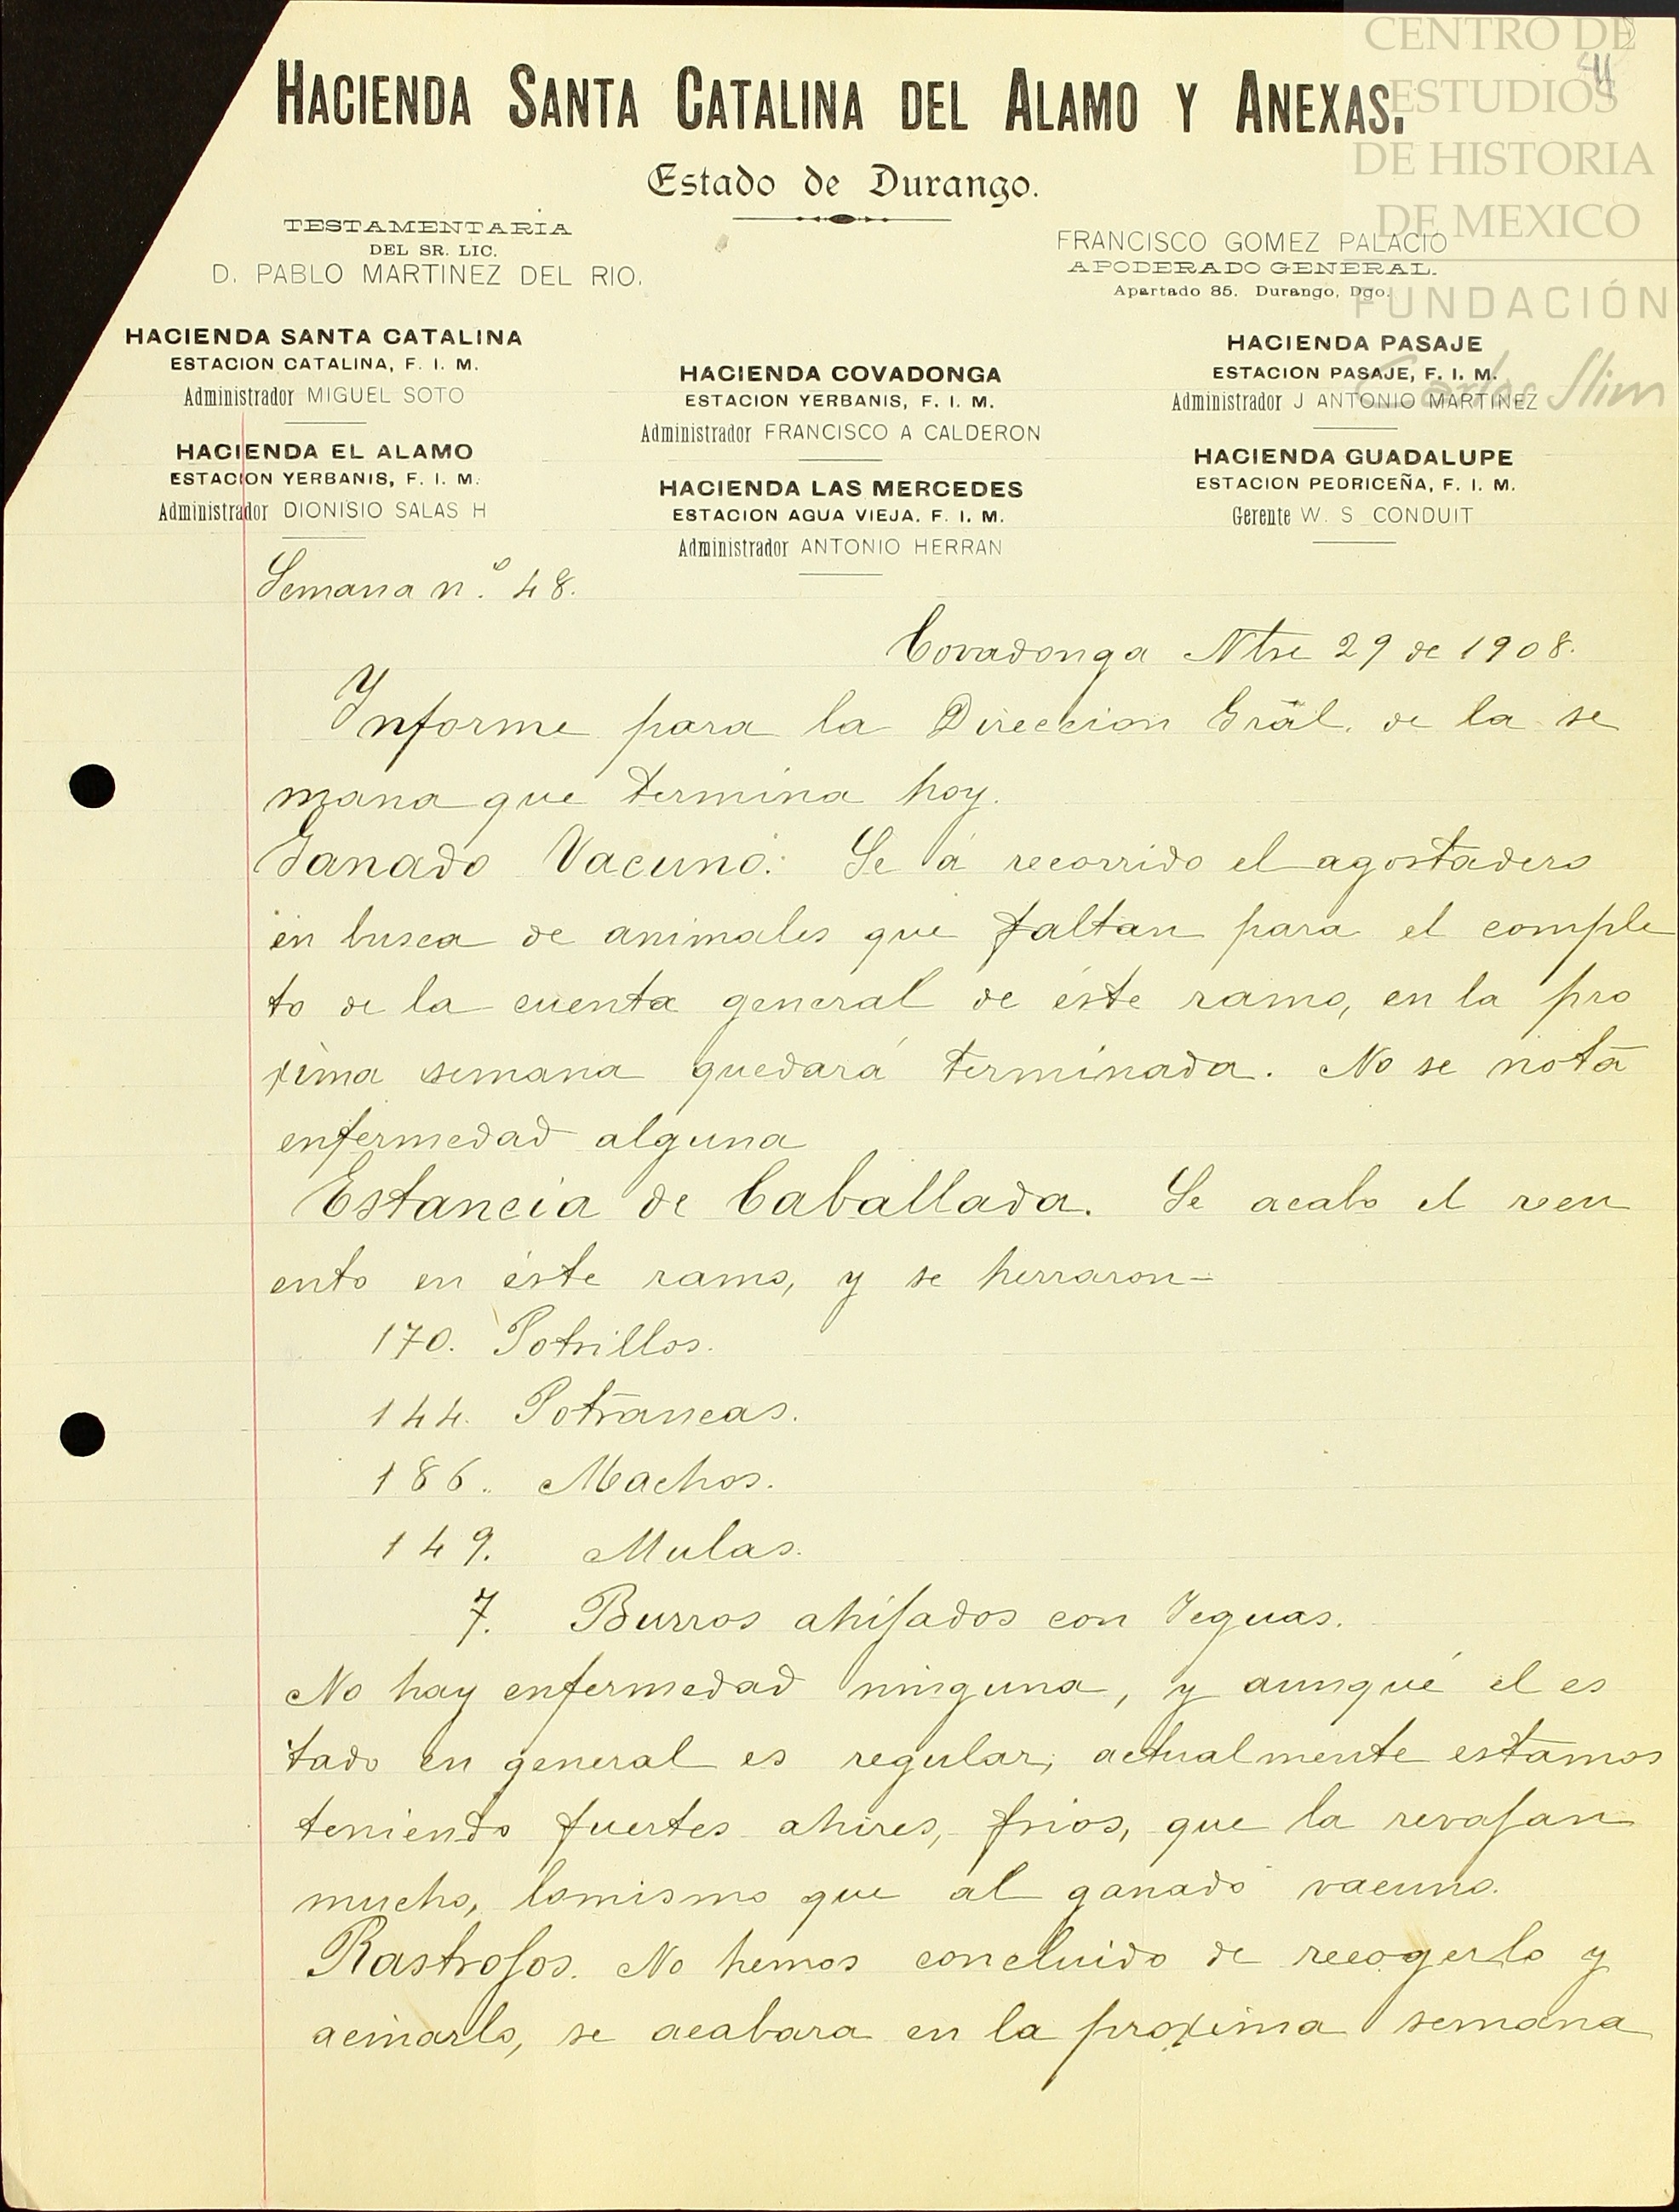 CENTRO DE
ESTUDIOS
DE HISTORIA
DE MEXICO
FUNDACIÓN
Carlos Slim
HACIENDA SANTA CATALINA DEL ALAMO Y ANEXAS.
Estado de Durango.
TESTAMENTARIA
DEL SR. LIC.
D. PABLO MARTINEZ DEL RIO.
FRANCISCO GOMEZ PALACIO
APODERADO GENERAL.
Apartado 85. Durango, Dgo.
HACIENDA SANTA CATALINA
ESTACION CATALINA, F. I. M.
Administrador MIGUEL SOTO
HACIENDA EL ALAMO
ESTACION YERBANIS, F. I. M.
Administrador DIONISIO SALAS H
HACIENDA COVADONGA
ESTACION YERBANIS, F. I. M.
Administrador FRANCISCO A CALDERON
HACIENDA LAS MERCEDES
ESTACION AGUA VIEJA. F. I. M.
Administrador ANTONIO HERRAN
HACIENDA PASAJE
ESTACION PASAJE, F. I. M.
Administrador J ANTONIO MARTINEZ
HACIENDA GUADALUPE
ESTACION PEDRICEÑA, F. I. M.
Gerente W. S CONDUIT
Semana n.º 48.
Covadonga Nbre 29 de 1908.
Ynforme para la Direccion Gral. de la se
mana que termina hoy.
Ganado Vacuno: Se á recorrido el agostadero
en busca de animales que faltan para el comple
to de la cuenta general de éste ramo, en la pro
xima semana quedará terminada. No se nota
enfermedad alguna
Estancia de Caballada. Se acabo el recu
ento en éste ramo, y se herraron-
170. Potrillos.
144. Potrancas.
186. Machos.
149. Mulas.
7. Burros ahijados con Yeguas.
No hay enfermedad ninguna, y aunqué el es
tado en general es regular, actualmente estamos
teniendo fuertes ahires, frios, que la revajan
mucho, lomismo que al ganado vacuno.
Rastrojos. No hemos concluido de recogerlo y
acinarlo, se acabara en la proxima semana